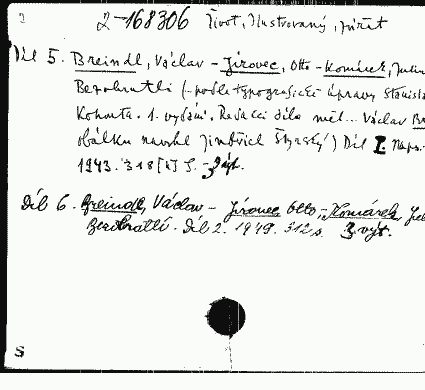 2-168306 Život, Ilustrovaný, zvířat
Díl 5. Breindl, Václav - Jírovec, Otto - Komárek, Julius
Bezobratlí (-podle typografické úpravy Stanisla
Kohouta. 1. vydání. Redakci díla měl... Václav Br
obálku navrhl Jindřich Štyrský) Díl I.
1943. 318 [1] S. - 3 výt.
Díl 6. Breindl, Václav - Jírovec Otto, - Komárek, Jul
Bezobratlí. Díl 2. 1949. 312 s. 3 výt.
S